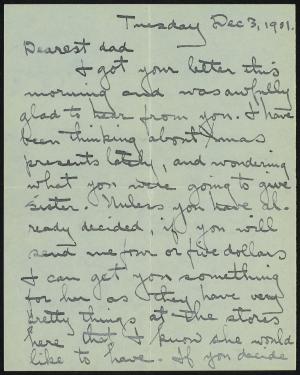 Tuesday Dec 3, 1901.
Dearest dad
I got your letter this
morning and was awfully
glad to hear from you. I have
been thinking about Xmas
presents lately, and wondering
what you were going to give
sister. Unless you have al-
ready decided, if you will
send me four or five dollars
I can get you something
for her as they have very
pretty things at the stores
here that I know she would
like to have. If you decide